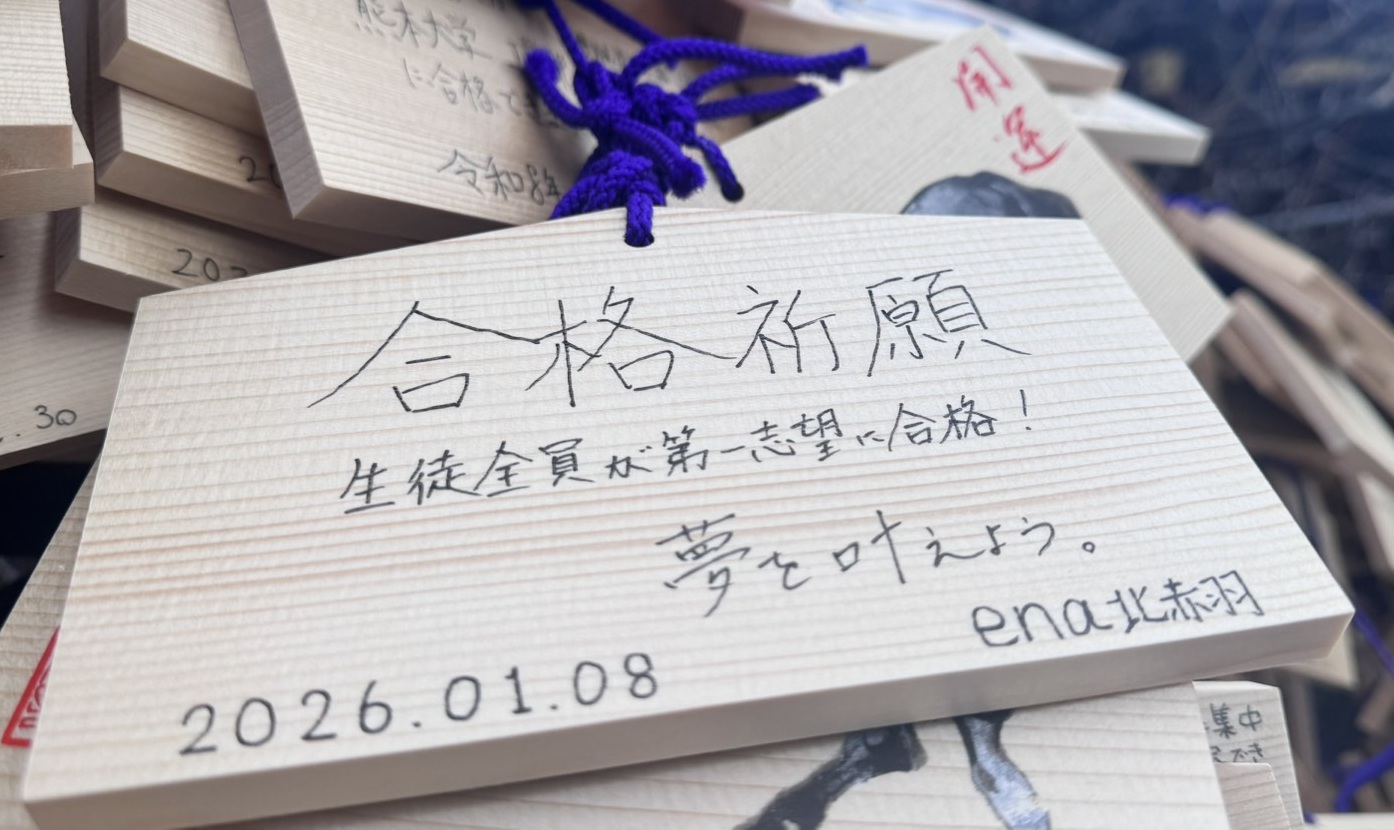 熊本大学
に合格
令和8年
開運
20
202
. 30
合格祈願
生徒全員が第一志望に合格！
夢を叶えよう。
ena北赤羽
2026.01.08
集中